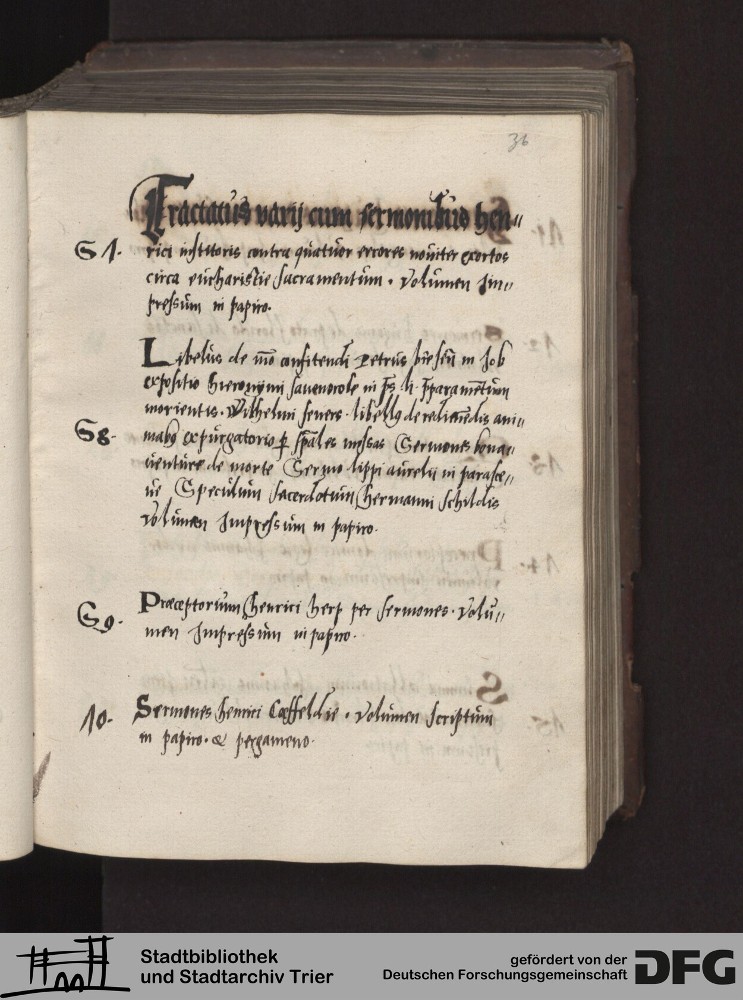 36
Tractatus varij cum sermonibus hen„
S 7. rici institoris contra quatuor errores noviter exortos
circa eucharistie sacramentum. Volumen Im„
pressum in papiro.
Libellus de mō confitendi Petrus in Job
expositio hieronymi savonorole in
morientis. Wilhelmi libellus de redimendis ani„
S8. mabus ex purgatorio missas Sermones bona„
venture de morte Sermo lippi aurelii in parasce„
ve Speculum sacerdotum hermanni schildis
Volumen Impressum in papiro.
S9. Praeceptorium henrici herp per sermones. Volu„
men Impressum in papiro.
10. Sermones henrici Coeffeldie. Volumen scriptum
in papiro. & pergameno.
Stadtbibliothek
und Stadtarchiv Trier
gefördert von der
Deutschen Forschungsgemeinschaft
DFG